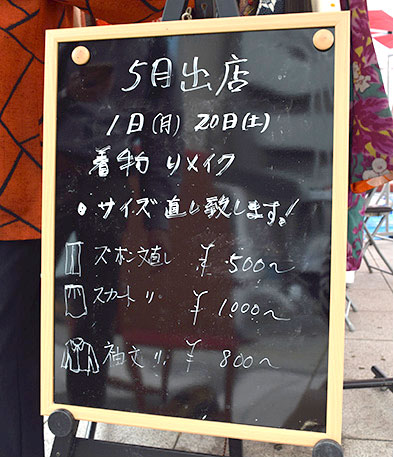 5月出店
1日(月) 20日(土)
着物リメイク
• サイズ直し致します!
ズボン丈直し ¥500〜
スカート 〃 ¥1,000〜
袖丈 〃 ¥800〜